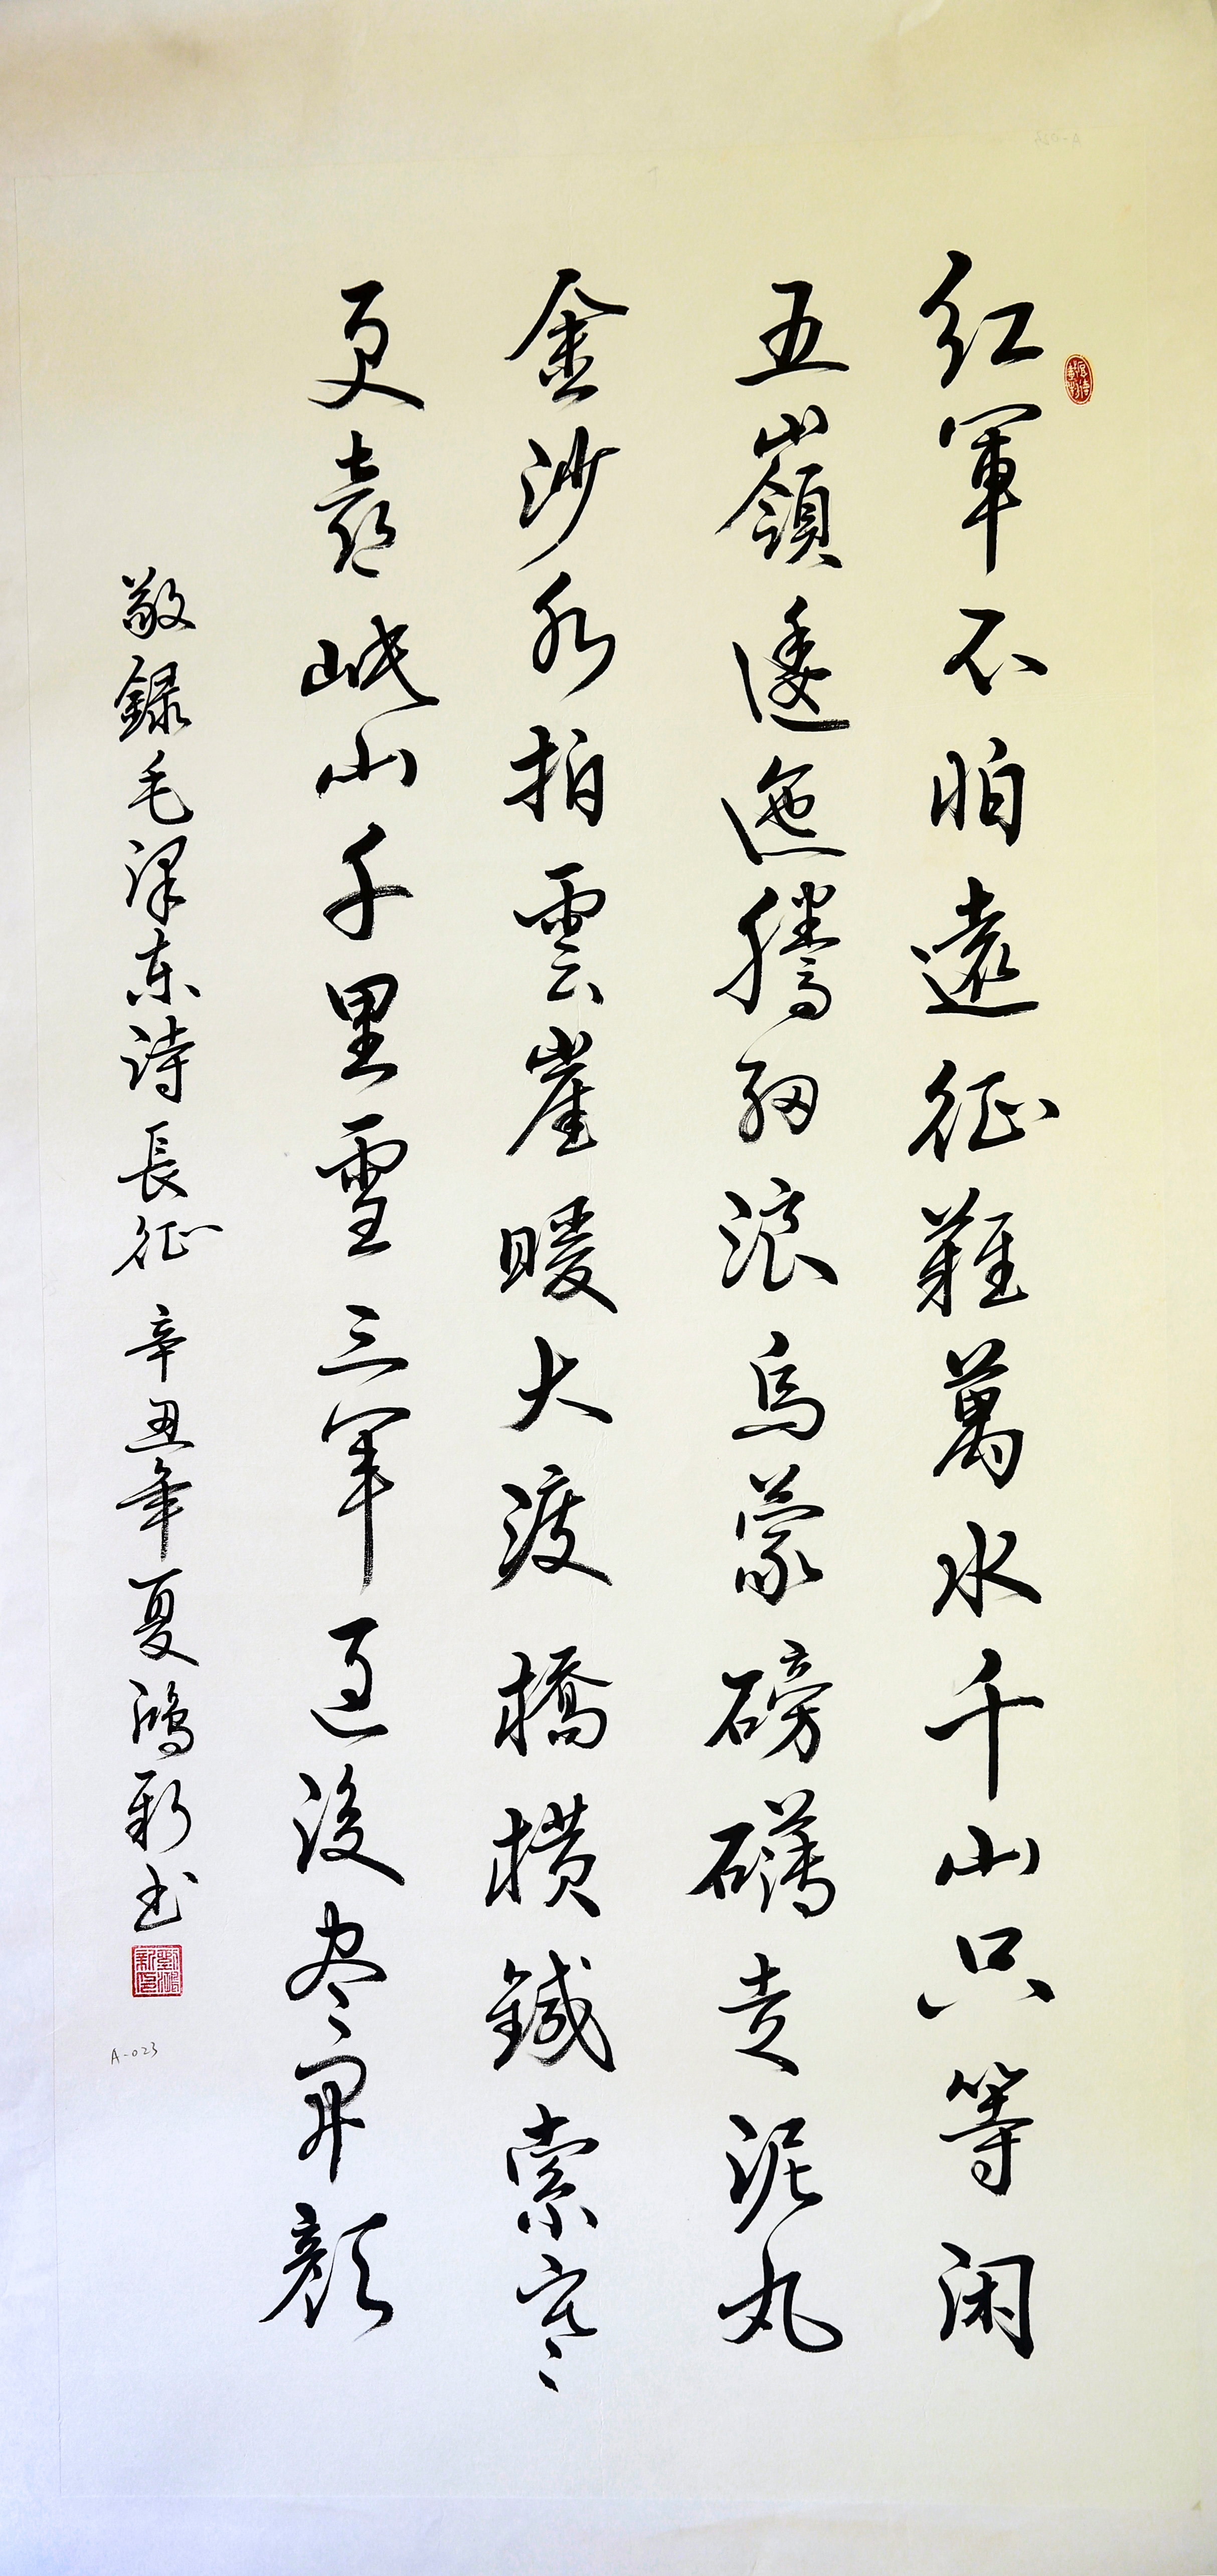 红軍不怕遠征難萬水千山只等闲
五嶺逶迤騰细浪烏蒙磅礴走泥丸
金沙水拍雲崖暖大渡橋横鐵索寒
更喜岷山千里雪三军过後尽开颜
敬録毛泽东詩長征 辛丑年夏鴻新书
A-023